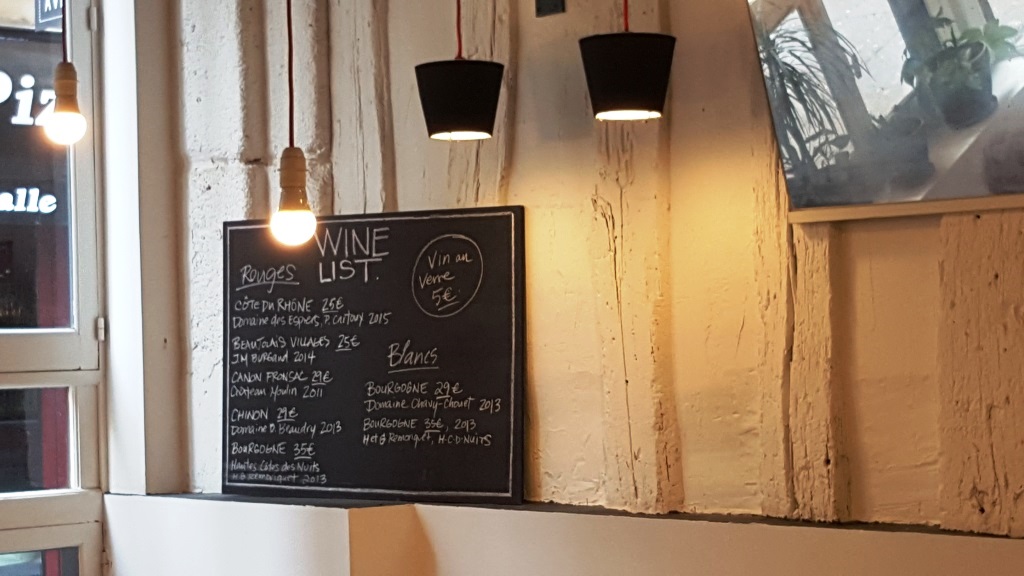 WINE
LIST.
Rouges
CÔTE DU RHÔNE 25€
Domaine des Espiers, P. Cartoux 2015
BEAUJOLAIS VILLAGES 25€
JM BURGAUD 2014
CANON FRONSAC 29€
Château Moulin 2011
CHINON 29€
Domaine B. Baudry 2013
BOURGOGNE 35€
Hautes Côtes des Nuits
2013
Vin au
verre
5€
Blancs
BOURGOGNE 29€
Domaine Chavy-Chouet 2013
BOURGOGNE 35€, 2013
H.C.D.NUITS
alle